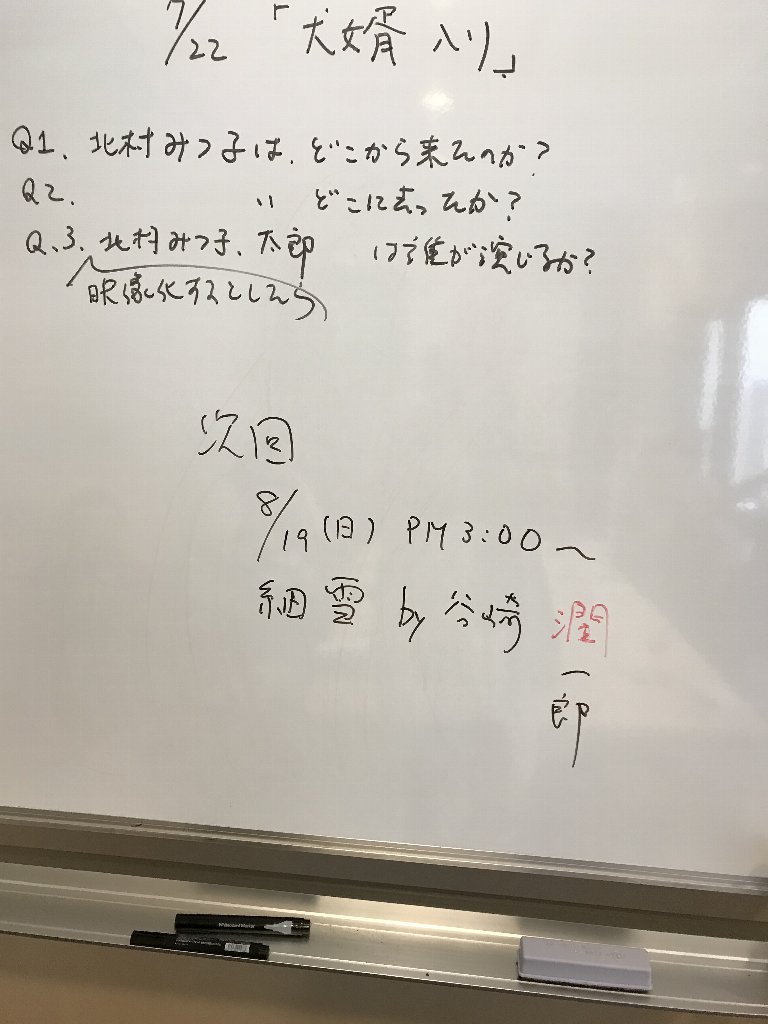 7/22 「犬婿入り」
Q1. 北村みつ子は、どこから来たのか?
Q2. 〃 どこに去ったか?
Q.3. 北村みつ子、太郎 は誰が演じるか?
映像化するとしたら
次回
8/19 (日) PM 3:00〜
細雪 by 谷崎 潤
一
郎